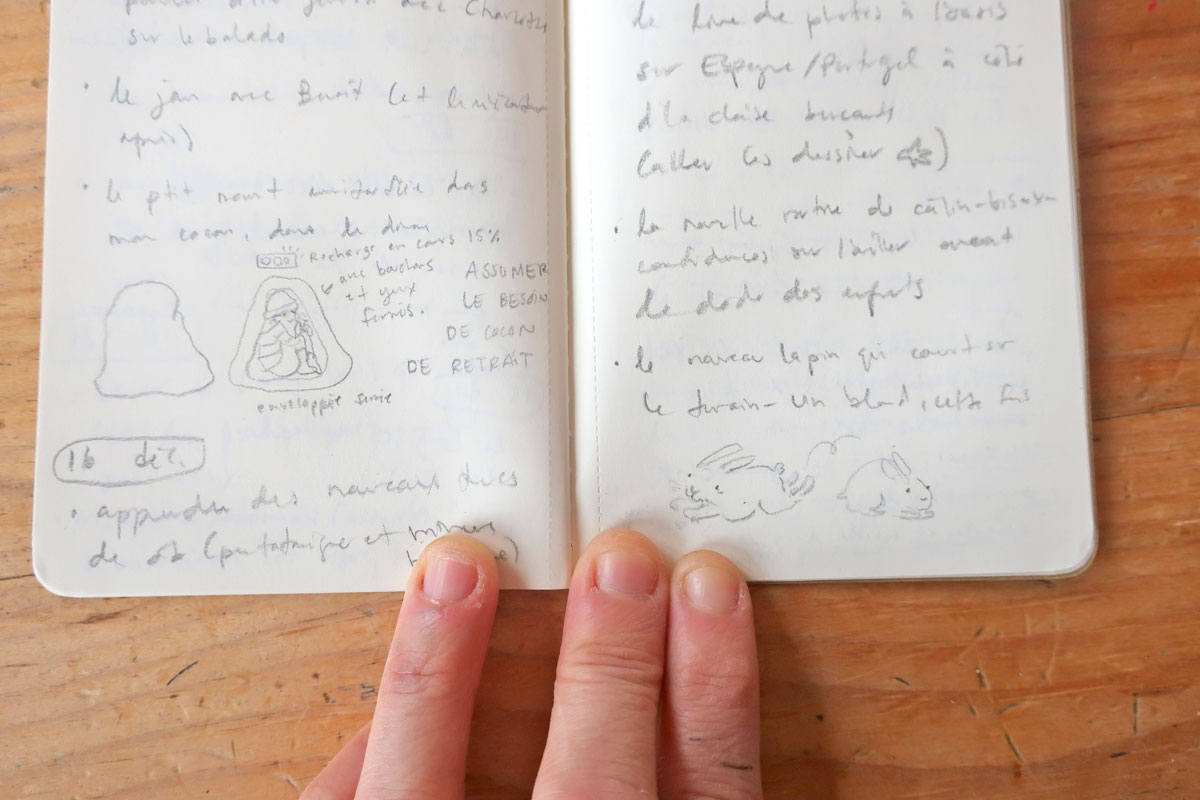 sur le balado
• le jam avec Benoît (et
après)
• le ptit mont emmitouflée dans
mon cocon, dans le divan
Recharge en cours 15%
avec bouchons
et yeux
fermés.
ASSUMER
LE BESOIN
DE COCON
DE RETRAIT
enveloppée
16 déc.
• apprendre des nouveaux trucs
de sb (pentatonique et mineur
le livre de photos à l'oasis
sur Espagne/Portugal à côté
d'la chaise berçante
(aller les dessiner ☆)
• la nouvelle routine de câlin-bisou-
confidences sur l'oreiller avant
le dodo des enfants
• le nouveau lapin qui court sur
le terrain - Un blond, cette fois